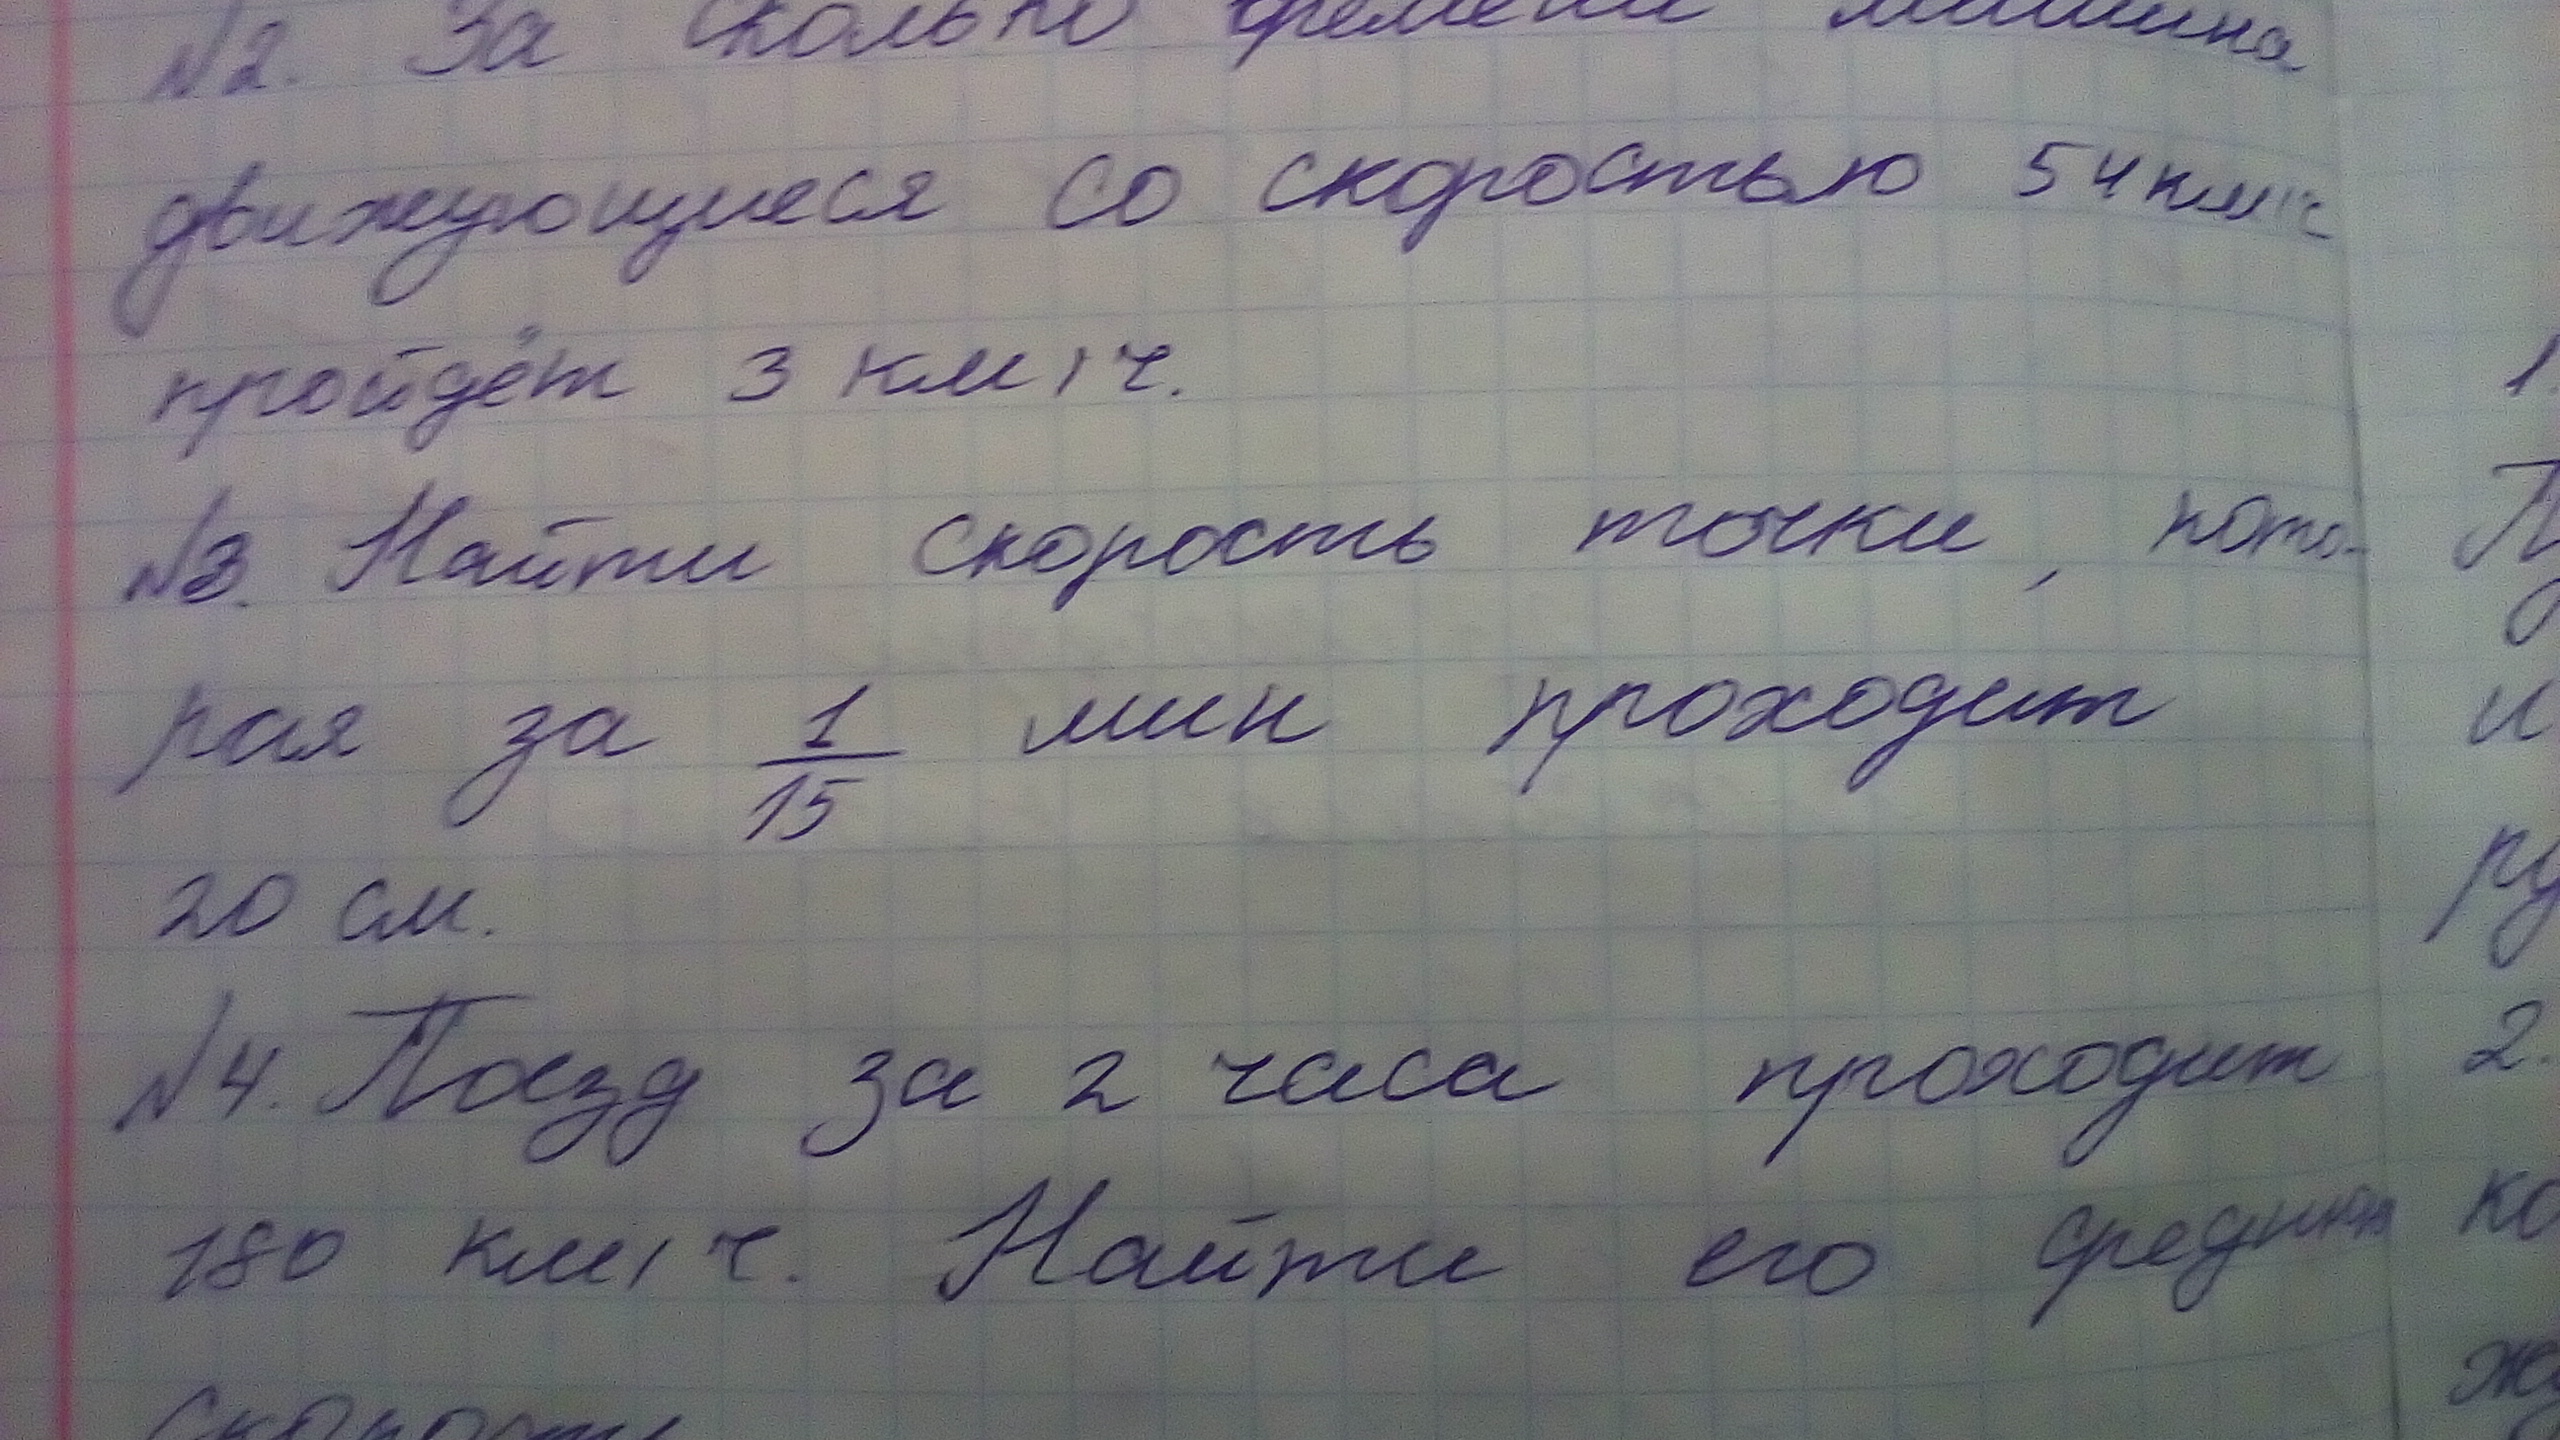 №2. За сколько времени машина
движующиеся со скоростью 54км/ч
пройдёт 3 км/ч.
№3. Найти скорость точки, кото-
рая за 1/15 мин проходит
20 см.
№4. Поезд за 2 часа проходит
180 км/ч. Найти его средн
скорость
1.
2.